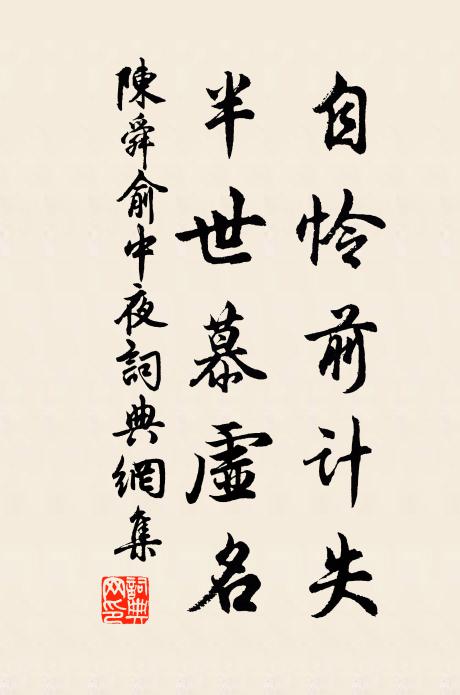 自怜前计失
半世慕虛名
陳舜俞中夜詞典網集
詞典網印